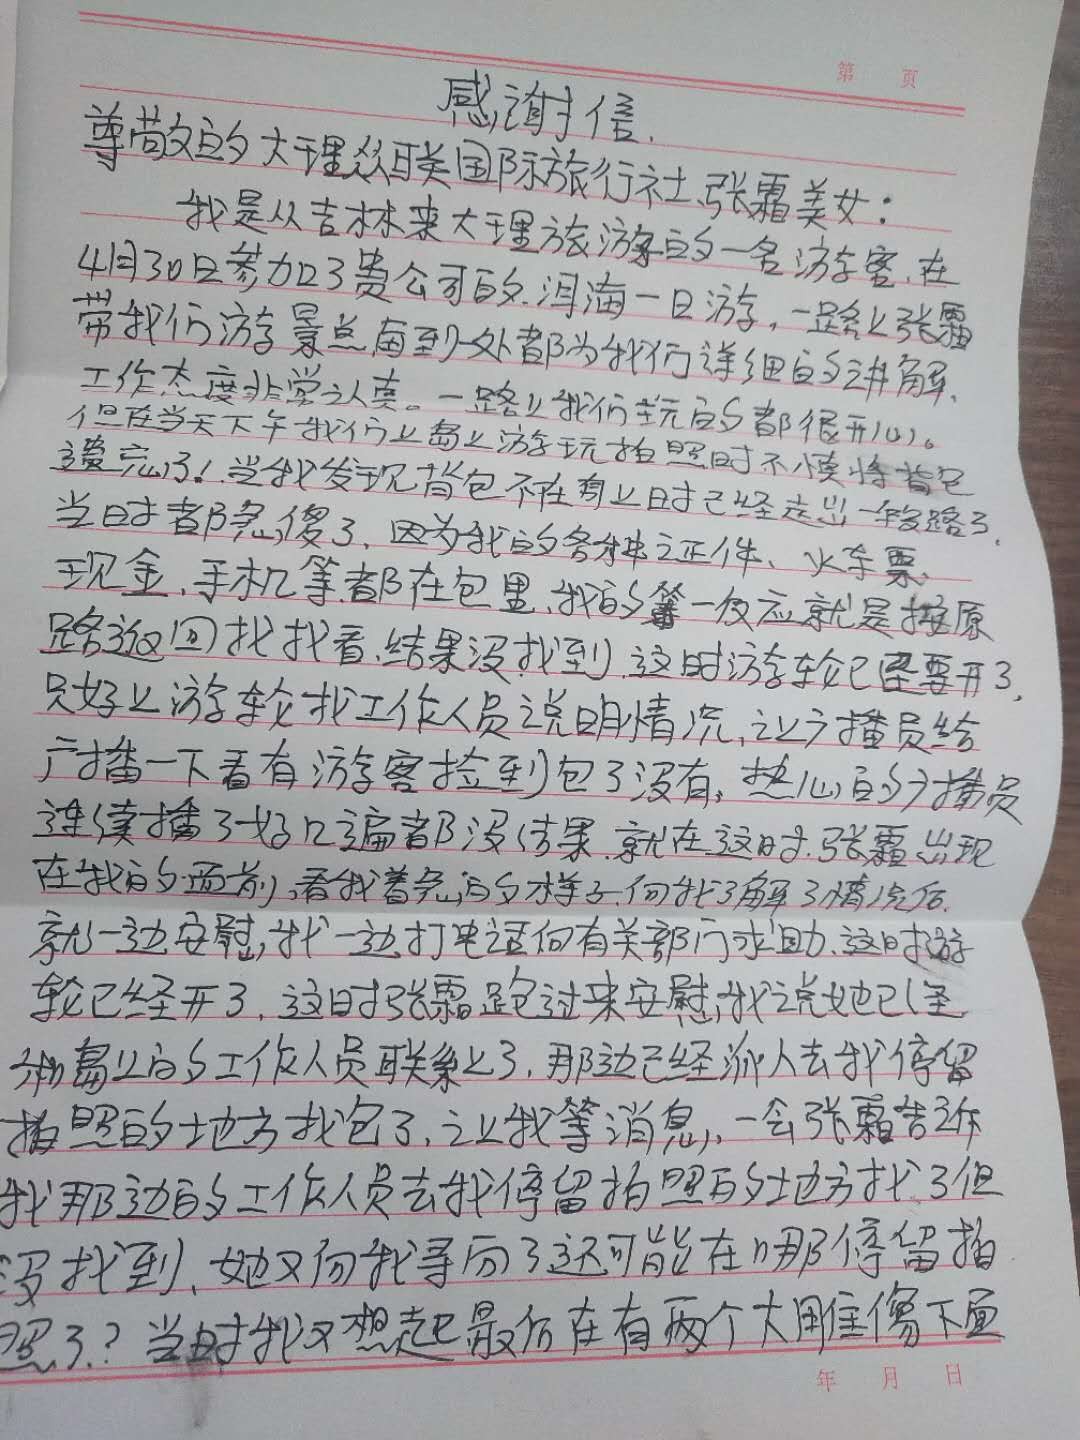 第 页
感谢信.
尊敬的大理众联国际旅行社.张霜美女:
我是从吉林来大理旅游的一名游客.在
4月30日参加了贵公司的.洱海一日游,一路上张霜
带我们游景点每到一处都为我们详细的讲解.
工作态度非常认真。一路上我们玩的都很开心。
但在当天下午我们上岛上游玩拍照时不慎将背包
遗忘了!当我发现背包不在身上时已经走出一段路了.
当时都急傻了.因为我的各种证件、火车票.
现金.手机等都在包里.我的第一反应就是按原
路返回找找看.结果没找到.这时游轮已经要开了,
只好上游轮找工作人员说明情况,让广播员给
广播一下看有游客捡到包了没有,热心的广播员
连续播了好几遍都没结果.就在这时.张霜出现
在我的面前,看我着急的样子.向我了解了情况后.
就一边安慰我一边打电话向有关部门求助.这时游
轮已经开了.这时张霜跑过来安慰我说她已经
和岛上的工作人员联系上了.那边已经派人去我停留
拍照的地方找包了.让我等消息,一会张霜告诉
我那边的工作人员去我停留拍照的地方找了但
没找到.她又向我寻问了还可能在哪停留拍
照了?当时我又想起最后在有两个大雕像下面
年 月 日